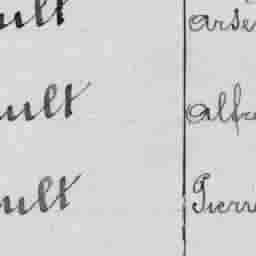 ult Arsè
ult Alfr
ult Pierr